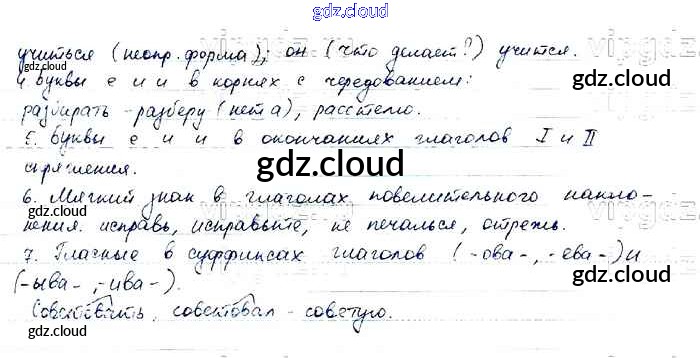 gdz.cloud
учиться (неопр. форма); он (что делает?) учится.
4 буквы е и и в корнях с чередованием:
разбирать - разберу (нет а), расстелю.
5. Буквы е и и в окончаниях глаголов I и II
спряжения.
6. Мягкий знак в глаголах повелительного накло-
нения. исправь, исправьте, не печалься, отрежь.
7. Гласные в суффиксах глаголов (-ова-, -ева-) и
(-ыва-, -ива-).
советовать, советовал - советую.
gdz.cloud